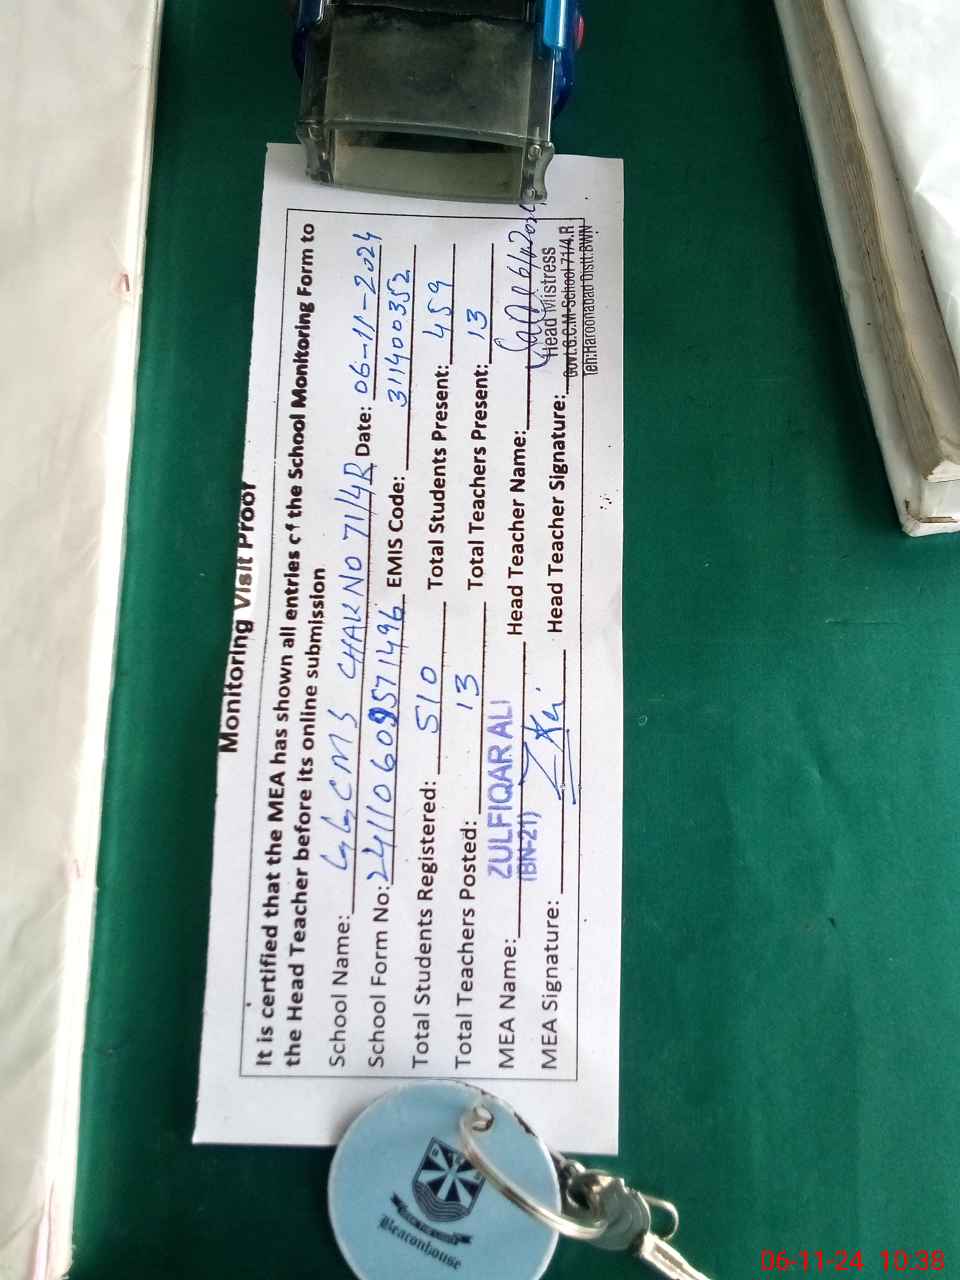 Monitoring Visit Proof
It is certified that the MEA has shown all entries of the School Monitoring Form to
the Head Teacher before its online submission
School Name: GGCMS CHAK NO 71/4R Date: 06-11-2024
School Form No: 24110609571496 EMIS Code: 311400352
Total Students Registered: 510 Total Students Present: 459
Total Teachers Posted: 13 Total Teachers Present: 13
MEA Name: ZULFIQAR ALI Head Teacher Name:
(BN-21)
MEA Signature: Head Teacher Signature:
Head Mistress
Govt.G.C.M-School 71/4.R
Teh:Haroonabad Distt:BWN
Beaconhouse
06-11-24 10:38